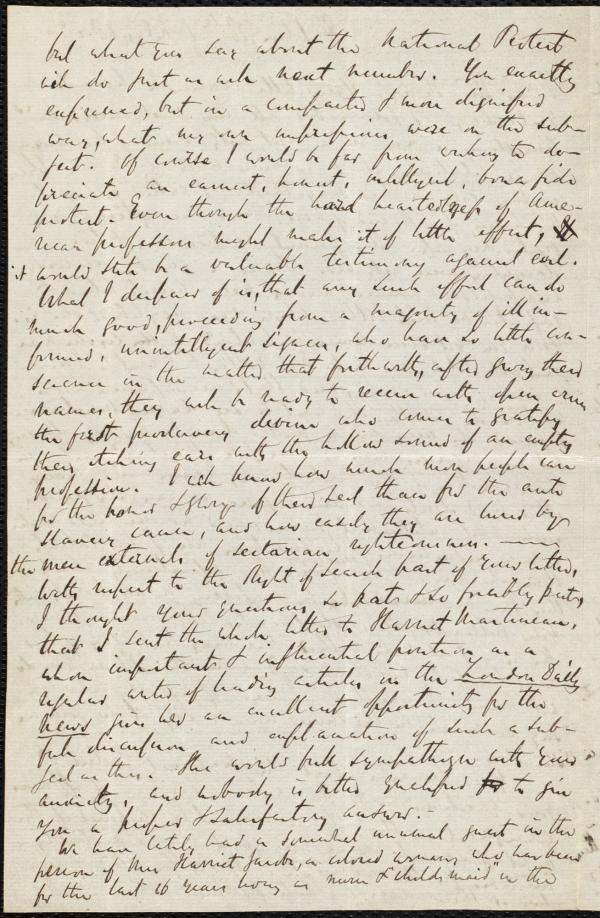 but what you say about the National Protest
will do just as well next number. You exactly
expressed, but in a compacted & more dignified
way, what my own impressions were on the sub-
ject. Of course I would be far from wishing to de-
preciate an earnest, honest, intelligent, bona fide
protest. Even though the hard heartedness of Ame-
rican professors might make it of little effect,
it would still be a valuable testimony against evil.
What I despair of is, that any such effort can do
much good, proceeding from a majority of ill in-
formed, unintelligent signers, who have so little con-
science in the matter that forthwith, after giving their
names, they will be ready to receive with open arms
the first proslavery divine who comes to gratify
their itching ears with the hollow sound of an empty
profession. I well know how much more people care
for the honor & glory of their sect than for the anti
slavery cause, and how easily they are lured by
the mere externals of sectarian righteousness. ——
With respect to the Right of Search part of your letter,
I thought your questions so pat & so forcibly put,
that I sent the whole letter to Harriet Martineau,
whose important & influential position as a
regular writer of leading articles in the London Daily
News gives her an excellent opportunity for the
full discussion and explanation of such a sub-
ject as this. She would fully sympathize with your
anxiety, and nobody is better qualified to give
you a proper & satisfactory answer. -
We have lately had a somewhat unusual guest in the
person of Mrs Harriet Jacobs, a colored woman, who has been
for the last 16 years living as nurse & childsmaid in the